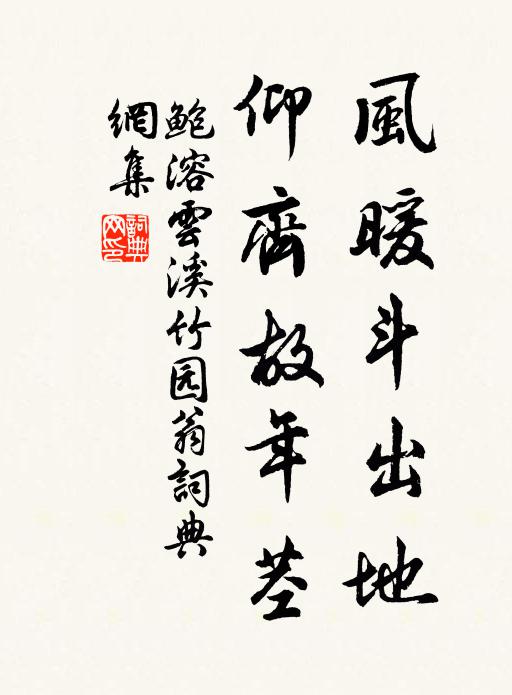 風暖斗出地
仰齊故年莖
鲍溶雲溪竹园翁詞典
網集
詞典
网印